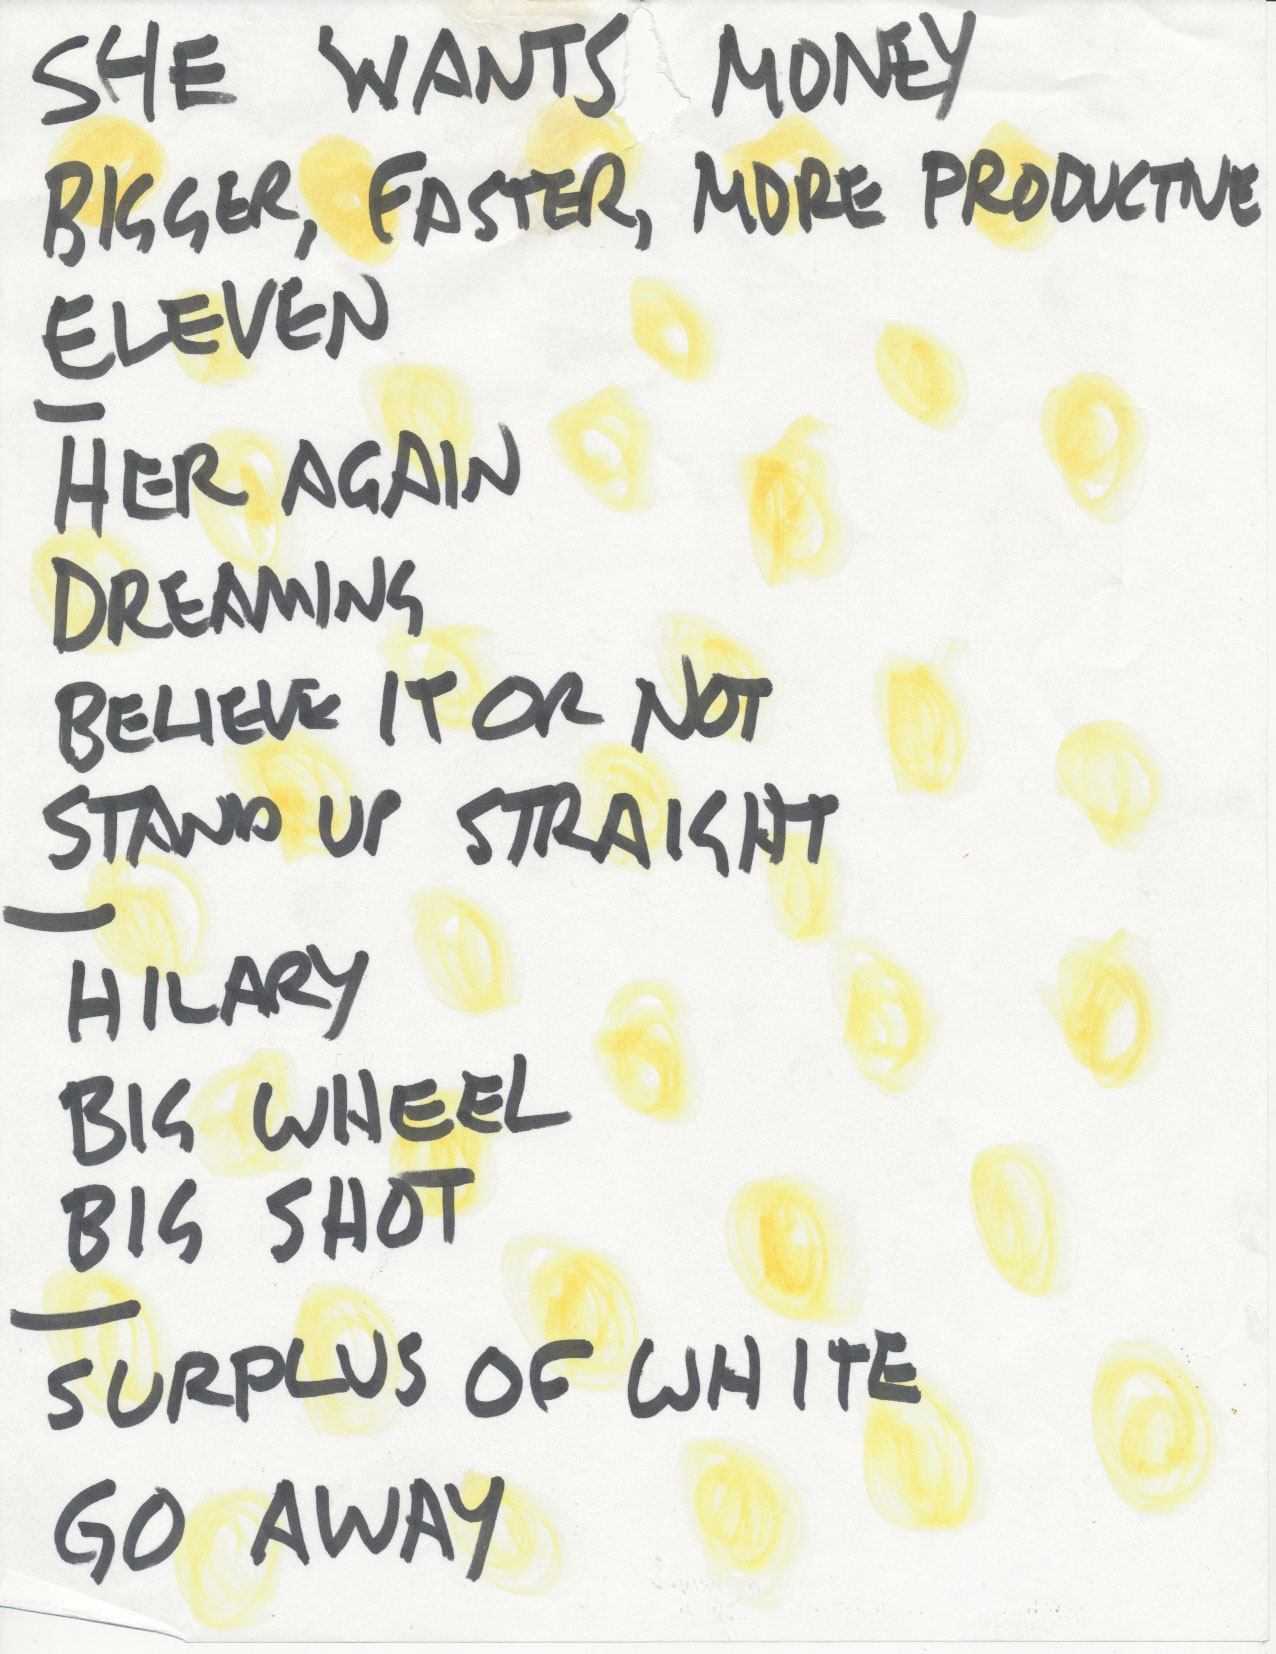 SHE WANTS MONEY
BIGGER, FASTER, MORE PRODUCTIVE
ELEVEN
HER AGAIN
DREAMING
BELIEVE IT OR NOT
STAND UP STRAIGHT
HILARY
BIG WHEEL
BIG SHOT
SURPLUS OF WHITE
GO AWAY